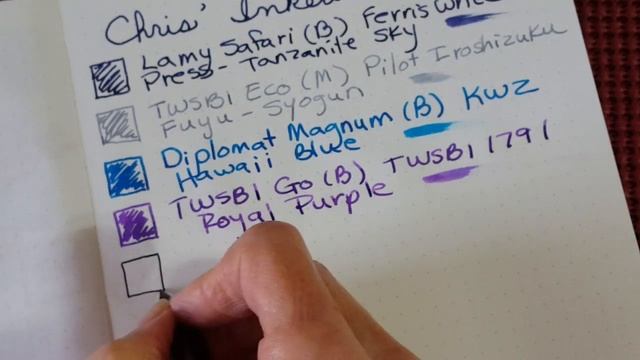 Chris' Inked
Lamy Safari (B) Ferris Whee
Press - Tanzanite Sky
TWSBI Eco (M) Pilot Iroshizuku
Fuyu - Syogun
Diplomat Magnum (B) KWZ
Hawaii Blue
TWSBI Go (B) TWSBI 1791
Royal Purple